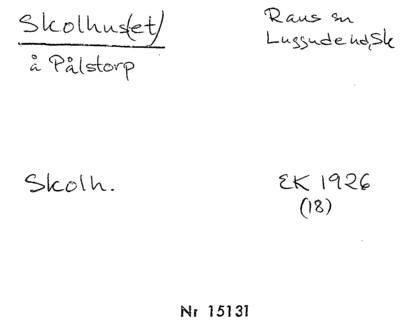 Skolhus(et)
å Pålstorp
Raus sn
Luggude hd, Sk
Skolh.
EK 1926
(18)
Nr 15131